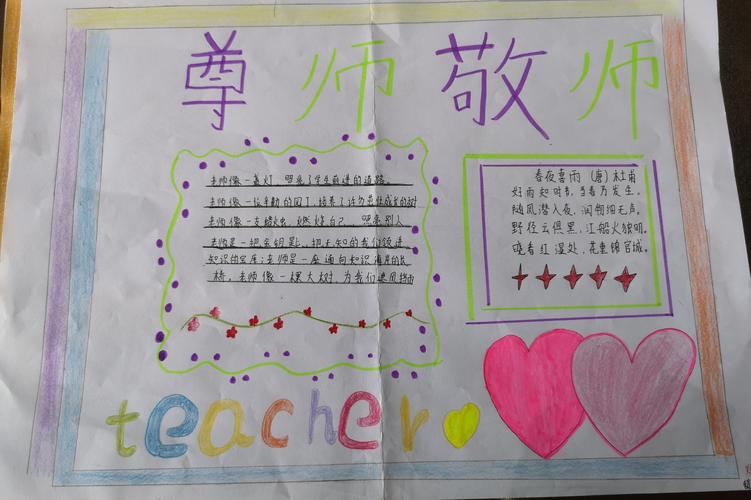 尊师敬师
老师像一盏灯,照亮了学生前进的道路。
老师像一位辛勤的园丁,培养了许多茁壮成长的树
老师像一支蜡烛,燃烧自己,照亮别人
老师是一把金钥匙,把无知的我们领进
知识的宝库;老师是一座通向知识海岸的长
桥。老师像一棵大树,为我们遮风挡雨
春夜喜雨 (唐) 杜甫
好雨知时节,当春乃发生。
随风潜入夜,润物细无声。
野径云俱黑,江船火独明。
晓看红湿处,花重锦官城。
teacher